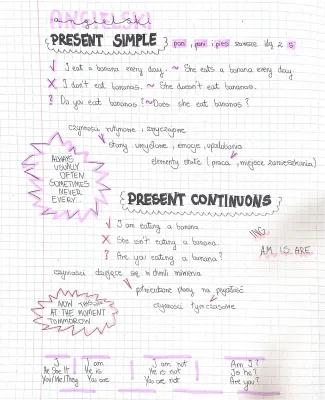 angielski
PRESENT SIMPLE
pan, pani i pies zawsze idą z S
√ I eat a banana every day. ~ She eats a banana every day.
X I don't eat bananas. ~ She doesn't eat bananas.
? Do you eat bananas? ~ Does she eat bananas?
czynności rutynowe i zwyczajowe
stany umysłowe, emocje, upodobania
elementy stałe (praca, miejsce zamieszkania)
ALWAYS
USUALLY
OFTEN
SOMETIMES
NEVER
EVERY...
PRESENT CONTINUONS
√ I am eating a banana
X She isn't eating a banana.
? Are you eating a banana?
ING
AM IS ARE
czynności dziejące się w chwili mówienia
potwierdzone plany na przyszłość
czynności tymczasowe
NOW
AT THE MOMENT
TOMMOROW
I I am I am not Am I?
He She It He is He is not Is he?
You/We/They You are You are not Are you?